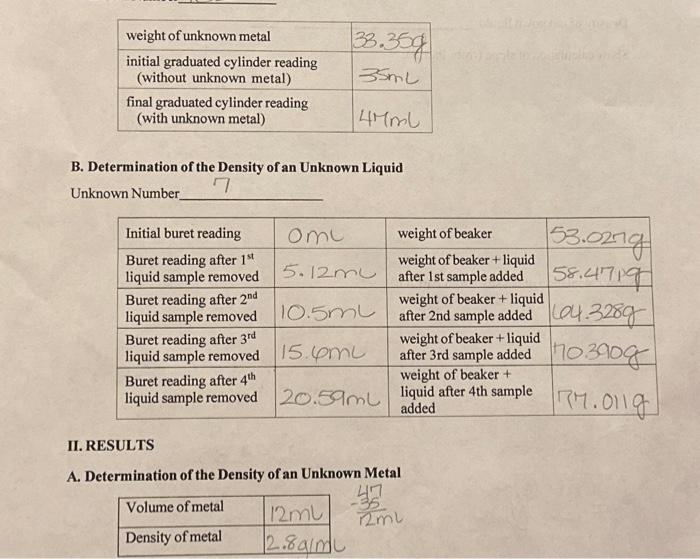 weight of unknown metal 33.35g
initial graduated cylinder reading
(without unknown metal) 35mL
final graduated cylinder reading
(with unknown metal) 47mL
B. Determination of the Density of an Unknown Liquid
Unknown Number 7
Initial buret reading 0mL weight of beaker 53.027g
Buret reading after 1st
liquid sample removed 5.12mL weight of beaker + liquid
after 1st sample added 58.471g
Buret reading after 2nd
liquid sample removed 10.5mL weight of beaker + liquid
after 2nd sample added 64.328g
Buret reading after 3rd
liquid sample removed 15.6mL weight of beaker + liquid
after 3rd sample added 70.390g
Buret reading after 4th
liquid sample removed 20.59mL weight of beaker +
liquid after 4th sample
added 77.011g
II. RESULTS
A. Determination of the Density of an Unknown Metal
Volume of metal 12mL
47
-35
12mL
Density of metal 2.8g/mL